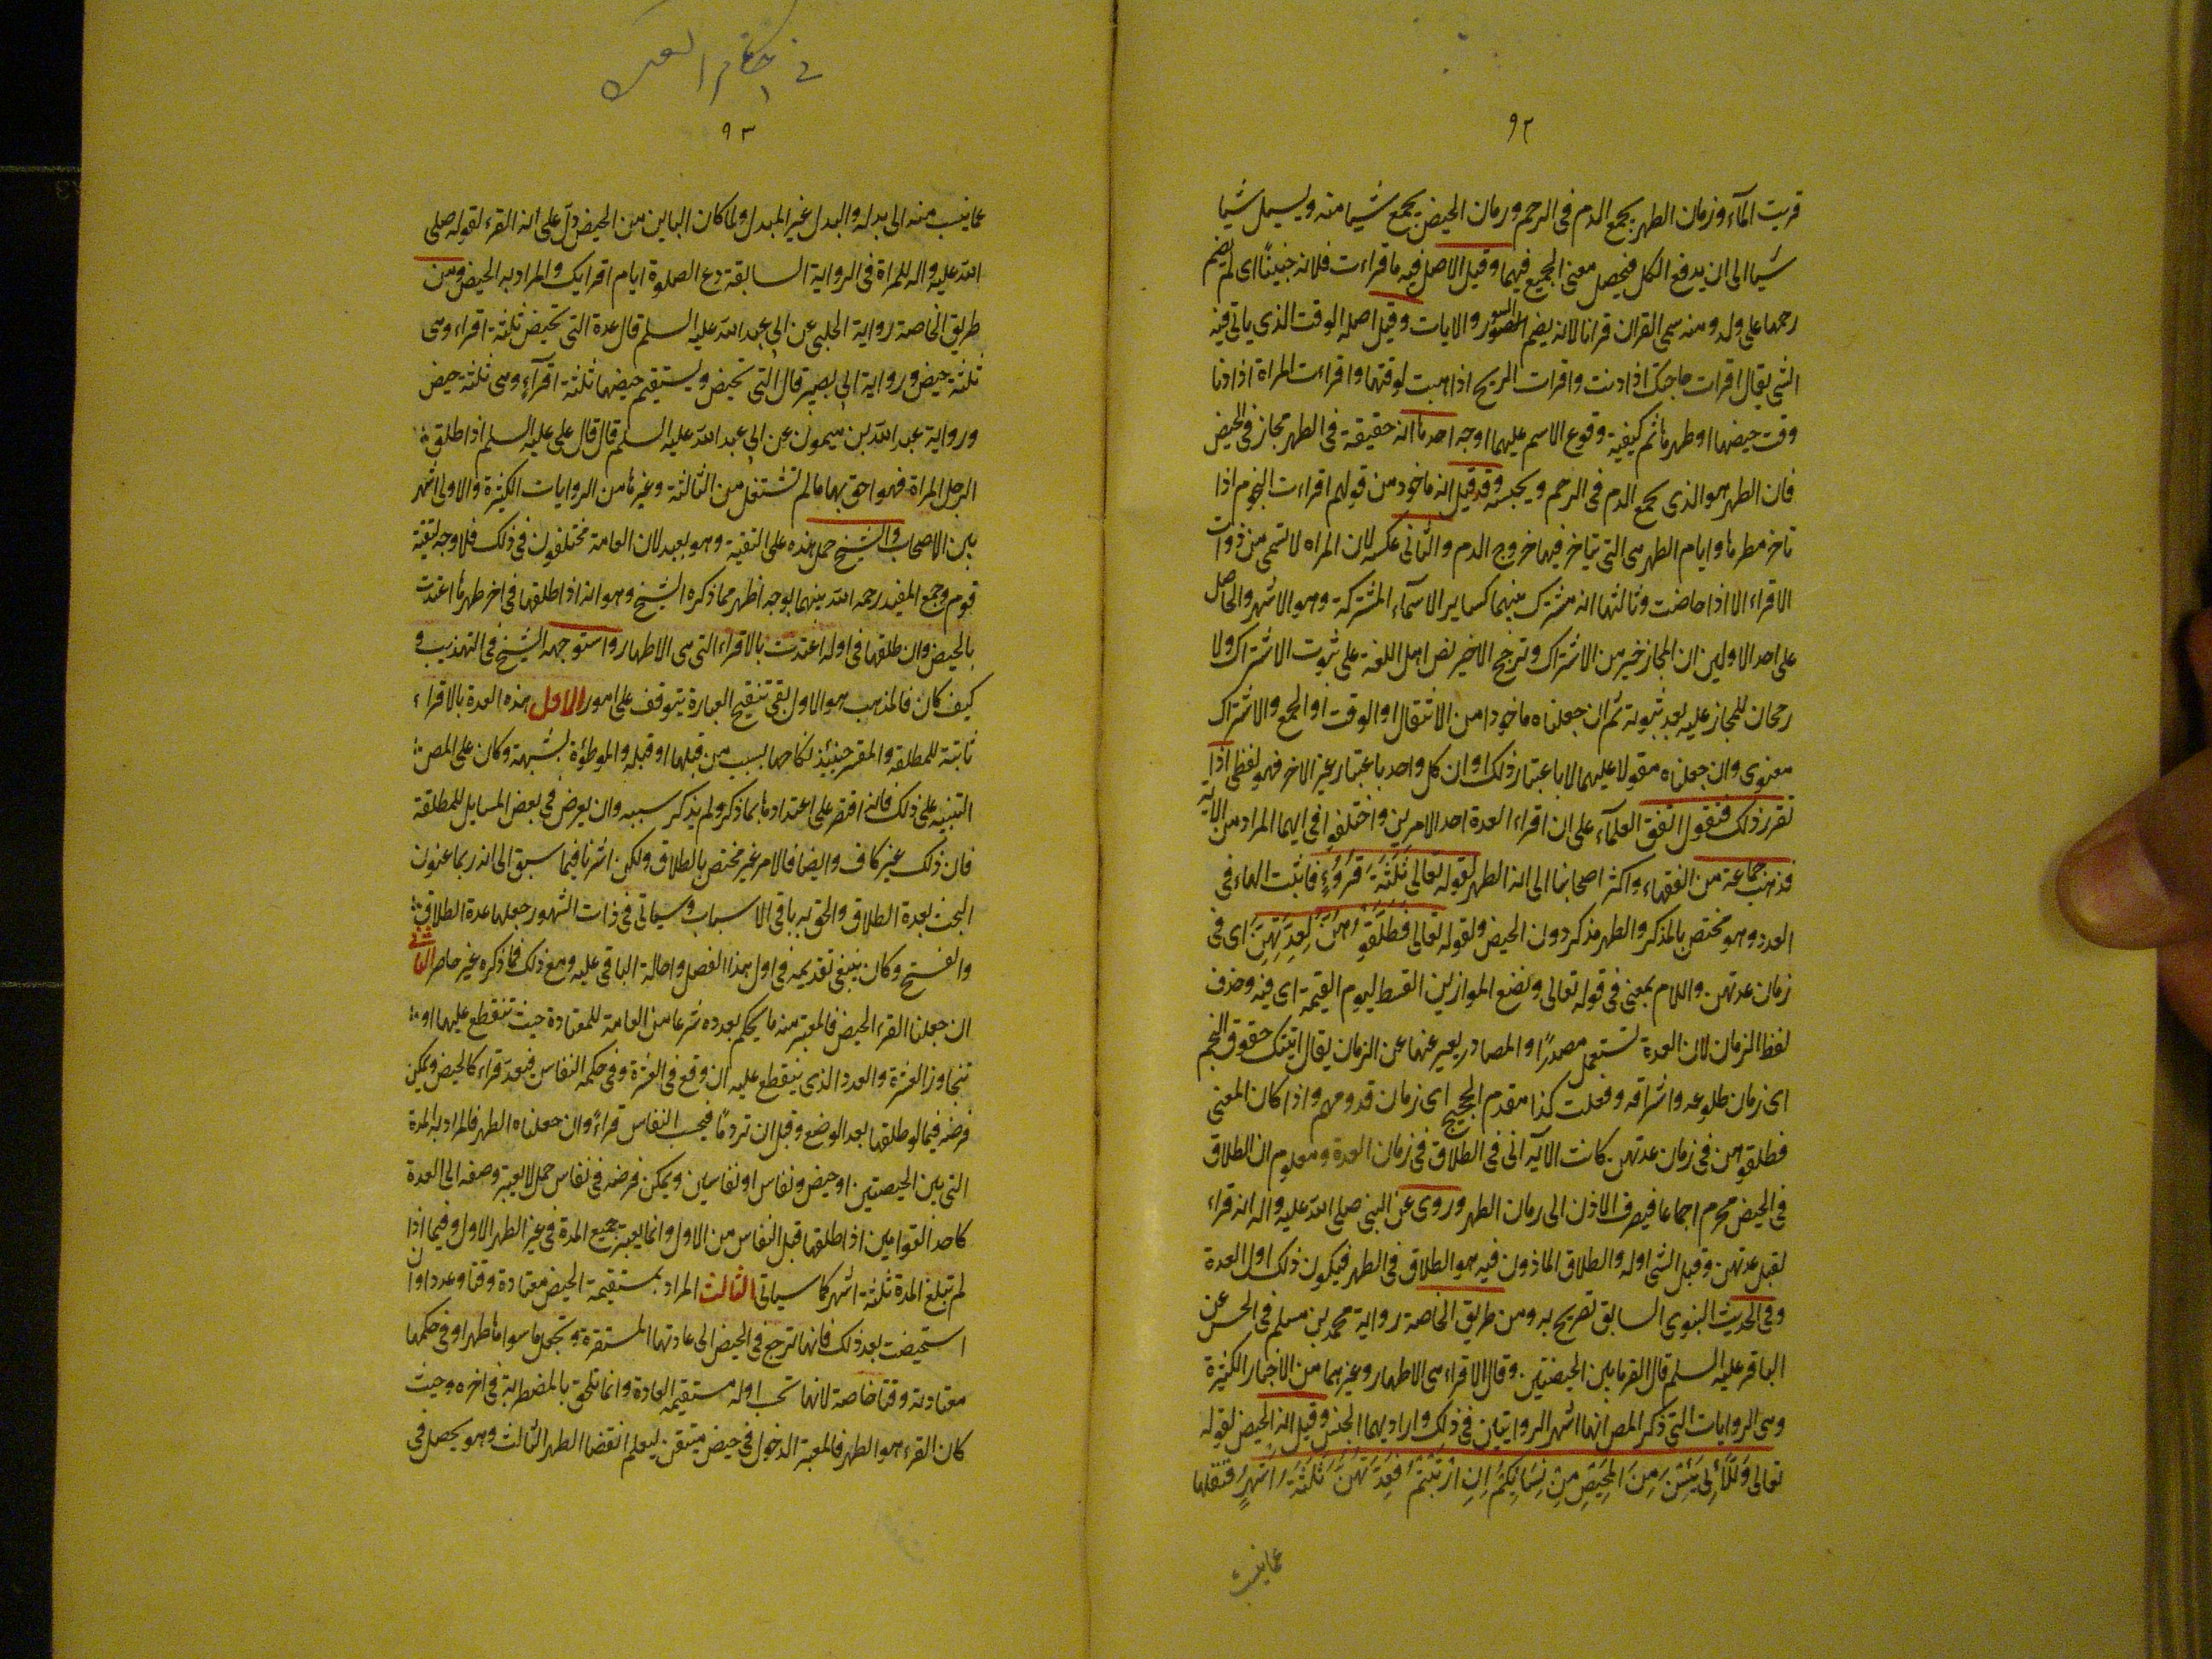 ٩٢
قريت المآء وزمان الطهر يجمع الدم فى الرحم وزمان الحيض يجمع شيا منه ويسيل شيا
شيا الى ان يدفع الكل فيحصل معنى الجمع فيهما وقيل الاصل فيه ما قراءت فلانه جنينًا اى لم يضم
رحمها على ولد ومنه سمى القران قرانا لانه يضم السور والايات وقيل اصله الوقت الذى ياتى فيه
الشى يقال اقرات حاجتك اذا دنت واقرات الريح اذا هبت لوقتها واقراءت المراة اذا دنا
وقت حيضها او طهرها ثم كيفية وقوع الاسم عليهما اوجه احدها انه حقيقة فى الطهر مجاز فى الحيض
فان الطهر هو الذى يجمع الدم فى الرحم ويحبسه وقد قيل انه ماخوذ من قولهم اقراءت النجوم اذا
تاخر مطرها وايام الطهر هى التى يتاخر فيها خروج الدم والثانى عكسه لان المراه لا تسمى من ذوات
الاقراء الا اذا حاضت وثالثها انه مشترك بينهما كساير الاسمآء المشتركة وهو الاشهر والحاصل
على احد الاولين ان المجاز خير من الاشتراك وترجح الاخير نص اهل اللغة على ثبوت الاشتراك ولا
رجحان للمجاز عليه بعد ثبوته ثم ان جعلناه ماخوذا من الانتقال او الوقت او الجمع والاشتراك
معنوى وان جعلناه مقولا عليهما لا باعتبار ذلك او ان كل واحد باعتبار غير الاخر فهو لفظى اذا
تقرر ذلك فنقول اتفق العلمآء على ان اقراء العدة احد الامرين واختلفوا فى ايهما المراد من الايه
فذهبت جماعة من الفقهاء واكثر اصحابنا الى انه الطهر لقوله تعالى ثَلَثَةَ قُرُوءٍ فاثبت الهاء فى
العدد وهو مختص بالمذكر والطهر مذكر دون الحيض ولقوله تعالى فَطَلِّقُوهُنَّ لِعِدَّتِهِنَّ اى فى
زمان عدتهن واللام بمعنى فى قوله تعالى ونضع الموازين القسط ليوم القيمة اى فيه وحذف
لفظ الزمان لان العدة تستعمل مصدرًا والمصادر يعبر عنها عن الزمان يقال اتيتك حقوق النجم
اى زمان طلوعه واشراقه وفعلت كذا مقدم الحجيج اى زمان قدومهم واذا كان المعنى
فطلقوهن فى زمان عدتهن كانت الآيه اذنى فى الطلاق فى زمان العدة ومعلوم ان الطلاق
فى الحيض محرم اجماعا فيصرف الاذن الى زمان الطهر وروى عن النبى صلى الله عليه واله انه قراء
لقبل عدتهن وقبل الشى اوله والطلاق الماذون فيه هو الطلاق فى الطهر فيكون ذلك اول العدة
وفى الحديث النبوى السابق تصريح به ومن طريق الخاصة رواية محمد بن مسلم فى الحسن عن
الباقر عليه السلم قال القرا ما بين الحيضتين وقال الاقراء هى الاطهار وغيرهما من الاخبار الكثيرة
وهى الروايات التى ذكر المص انها اشهر الروايتين فى ذلك واراد بهما الجنس وقيل انه الحيض لقوله
تعالى وَاللَّائِى يَئِسْنَ مِنَ الْمَحِيضِ مِنْ نِسَائِكُمْ اِنِ ارْتَبْتُمْ فَعِدَّتُهُنَّ ثَلَثَةُ اَشْهُرٍ فنقلها
عما يئست
فى احكام العدد
٩٣
عما يئست منه الى بدله والبدل غير المبدل ولما كان الباين من الحيض دلّ على انه القرء لقوله صلى
الله عليه واله للمراة فى الرواية السابقة دع الصلوة ايام اقرايك والمراد به الحيض ومن
طريق الخاصة رواية الحلبى عن ابى عبد الله عليه السلم قال عدة التى تحيض ثلثة اقراء وهى
ثلثة حيض ورواية ابى بصير قال التى تحيض ويستقيم حيضها ثلثة اقرآء وهى ثلثة حيض
ورواية عبد الله بن ميمون عن ابى عبد الله عليه السلم قال قال على عليه السلم اذا طلق
الرجل المراة فهو احق بها ما لم تغتسل من الثالثة وغيرها من الروايات الكثيرة والاولى اشهر
بين الاصحاب والشيخ حمل هذه على التقية وهو بعيد لان العامة مختلفون فى ذلك فلا وجه لتقية
قوم وجمع المفيد رحمه الله بينهما بوجه اظهر مما ذكره الشيخ وهو انه اذا طلقها فى اخر طهرها اعتدت
بالحيض وان طلقها فى اوله اعتدت بالاقراء التى هى الاطهار واستوجهه الشيخ فى التهذيب و
كيف كان فالمذهب هو الاول بقى تنقيح العبارة يتوقف على امور الاول هذه العدة بالاقراء
ثابتة للمطلقة والمفسر حينئذ نكاحها بسبب من قبلها او قبله والموطؤة بشبهة وكان على المص
التنبيه على ذلك فانه اقتصر على اعتدادها بما ذكر ولم يذكر سببه وان يعرض فى بعض المسايل للمطلقة
فان ذلك غير كاف وايضا فالامر غير مختص بالطلاق ولكن اشرنا فيما سبق الى انه ربما عنون
البحث بعدة الطلاق والحق به باقى الاسباب وسياتى فى ذات الشهور جعلها عدة الطلاق
والفسخ وكان ينبغى تقديمه فى اول هذا الفصل واحالة الباقى عليه ومع ذلك فما ذكره غير حاصر الثانى
ان جعلنا القرء الحيض فالمعتبر منه ما يحكم بعدده شرعا من العامة للمعتادة حيث تنقطع عليها او
تتجاوز العشرة والعدد الذى ينقطع عليه ان وقع فى العشرة وفى حكمه النفاس فيعد قراء كالحيض ويمكن
فرضه فيما لو طلقها بعد الوضع وقبل ان ترد مًا فيحسب النفاس قراءً وان جعلناه الطهر فالمراد به المدة
التى بين الحيضتين او حيض ونفاس او نفاسين ويمكن فرضه فى نفاس حمل لا يعتبر وضعه الى العدة
كاحد التوامين اذا طلقها قبل النفاس من الاول وانما يعتبر جميع المدة فى غير الطهر الاول وفيما اذا
لم تبلغ المدة ثلثة اشهر كما سياتى الثالث المراد بمستقيمة الحيض معتادة وقتا وعددا وان
استحيضت بعد ذلك فانها ترجع فى الحيض الى عادتها المستقرة وتجعل ما سواها طهرا وفى حكمها
معتادته وقتا خاصة لانها تحب اوله مستقيمه العادة وانما تلحق بالمضطربة فى اخره وحيث
كان القرء هو الطهر فالمعتبر الدخول فى حيض متيقن ليعلم انقضا الطهر الثالث وهو يحصل فى